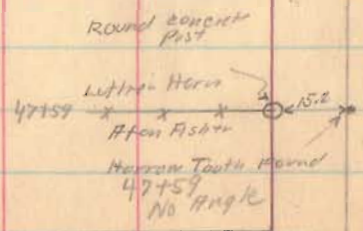 Round concrete
Post
Luthren Horn
47+59 x x x 15.2
Afton Fisher
Harrow Tooth Found
47+59
No Angle